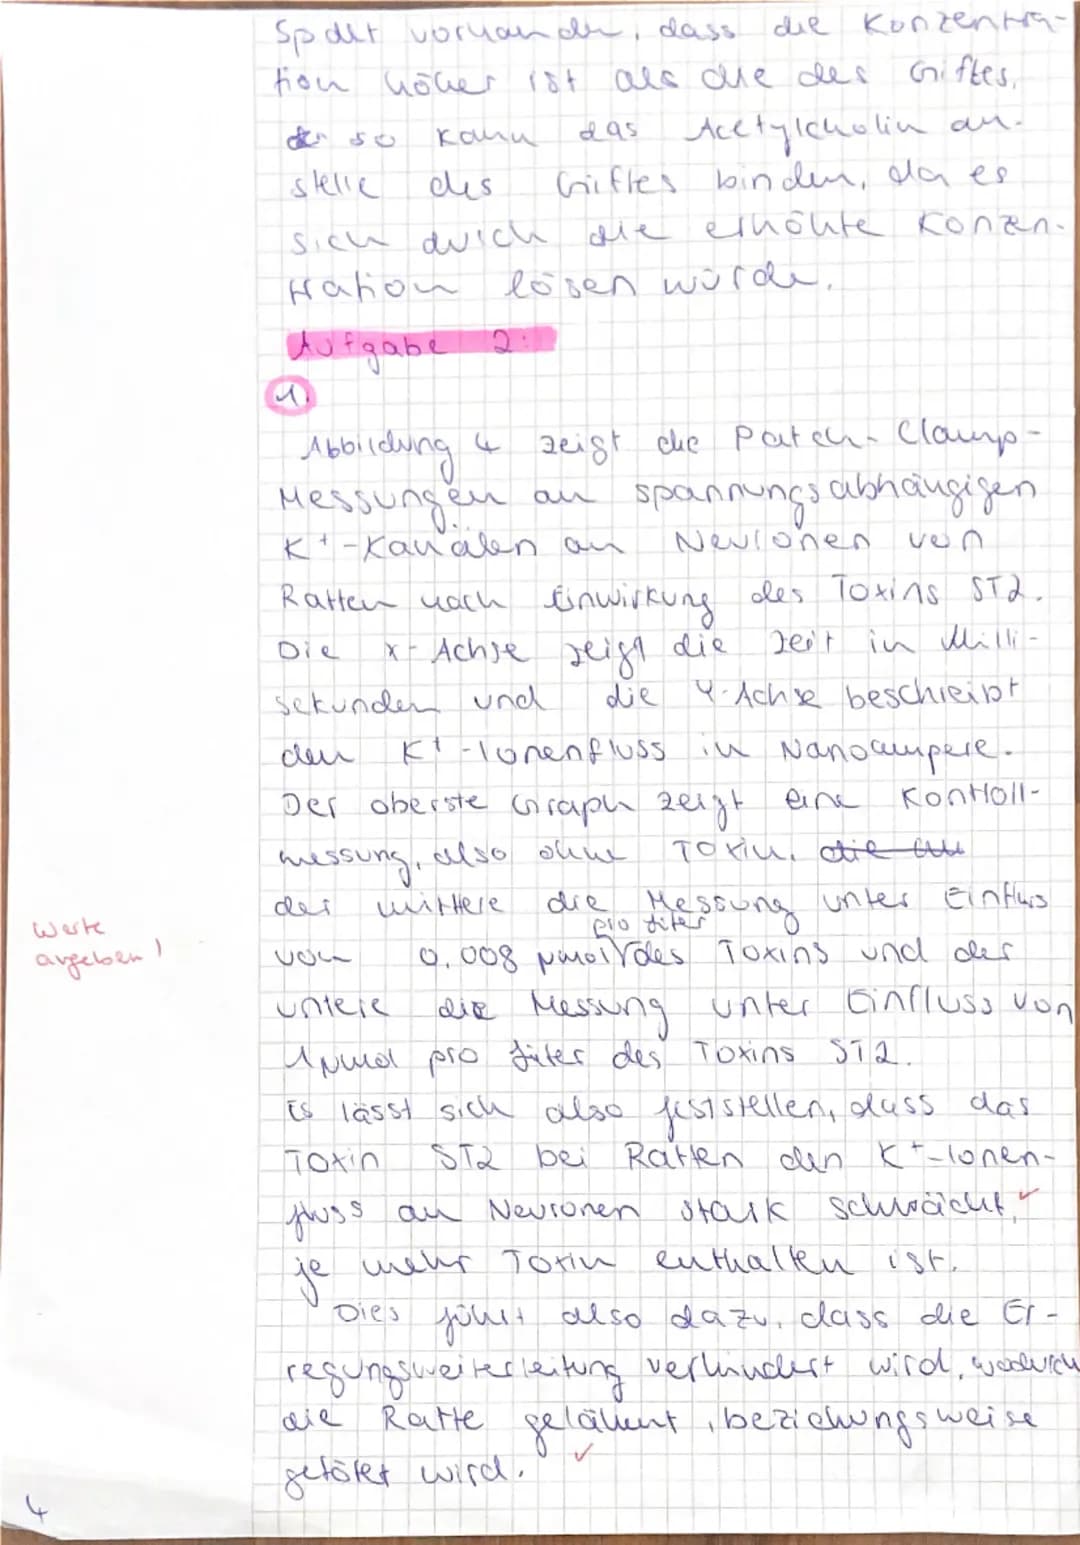 Spalt vorhanden, dass die Konzentra-
tion höher ist als die des Giftes,
so kann das Acetylcholin an-
stelle des Giftes binden, da es
sich durch die erhöhte Konzen-
tration lösen würde.
Aufgabe 2:
1.
Abbildung 4 zeigt die Patch-Clamp-
Messungen an spannungsabhängigen
K⁺-Kanälen an Neuronen von
Ratten nach Einwirkung des Toxins ST2.
Die x-Achse zeigt die Zeit in Milli-
sekunden und die Y-Achse beschreibt
den K⁺-Ionenfluss in Nanoampere.
Der oberste Graph zeigt eine Kontroll-
messung, also ohne Toxin, die
der mittlere die Messung unter Einfluss
pro Liter
Werte
angeben!
von 0,008 µmol des Toxins und der
untere die Messung unter Einfluss von
1µmol pro Liter des Toxins ST2.
Es lässt sich also feststellen, dass das
Toxin ST2 bei Ratten den K⁺-Ionen-
fluss an Neuronen stark schwächt,
je mehr Toxin enthalten ist.
Dies führt also dazu, dass die Er-
regungsweiterleitung verhindert wird, wodurch
die Ratte gelähmt, beziehungsweise
getötet wird.
4